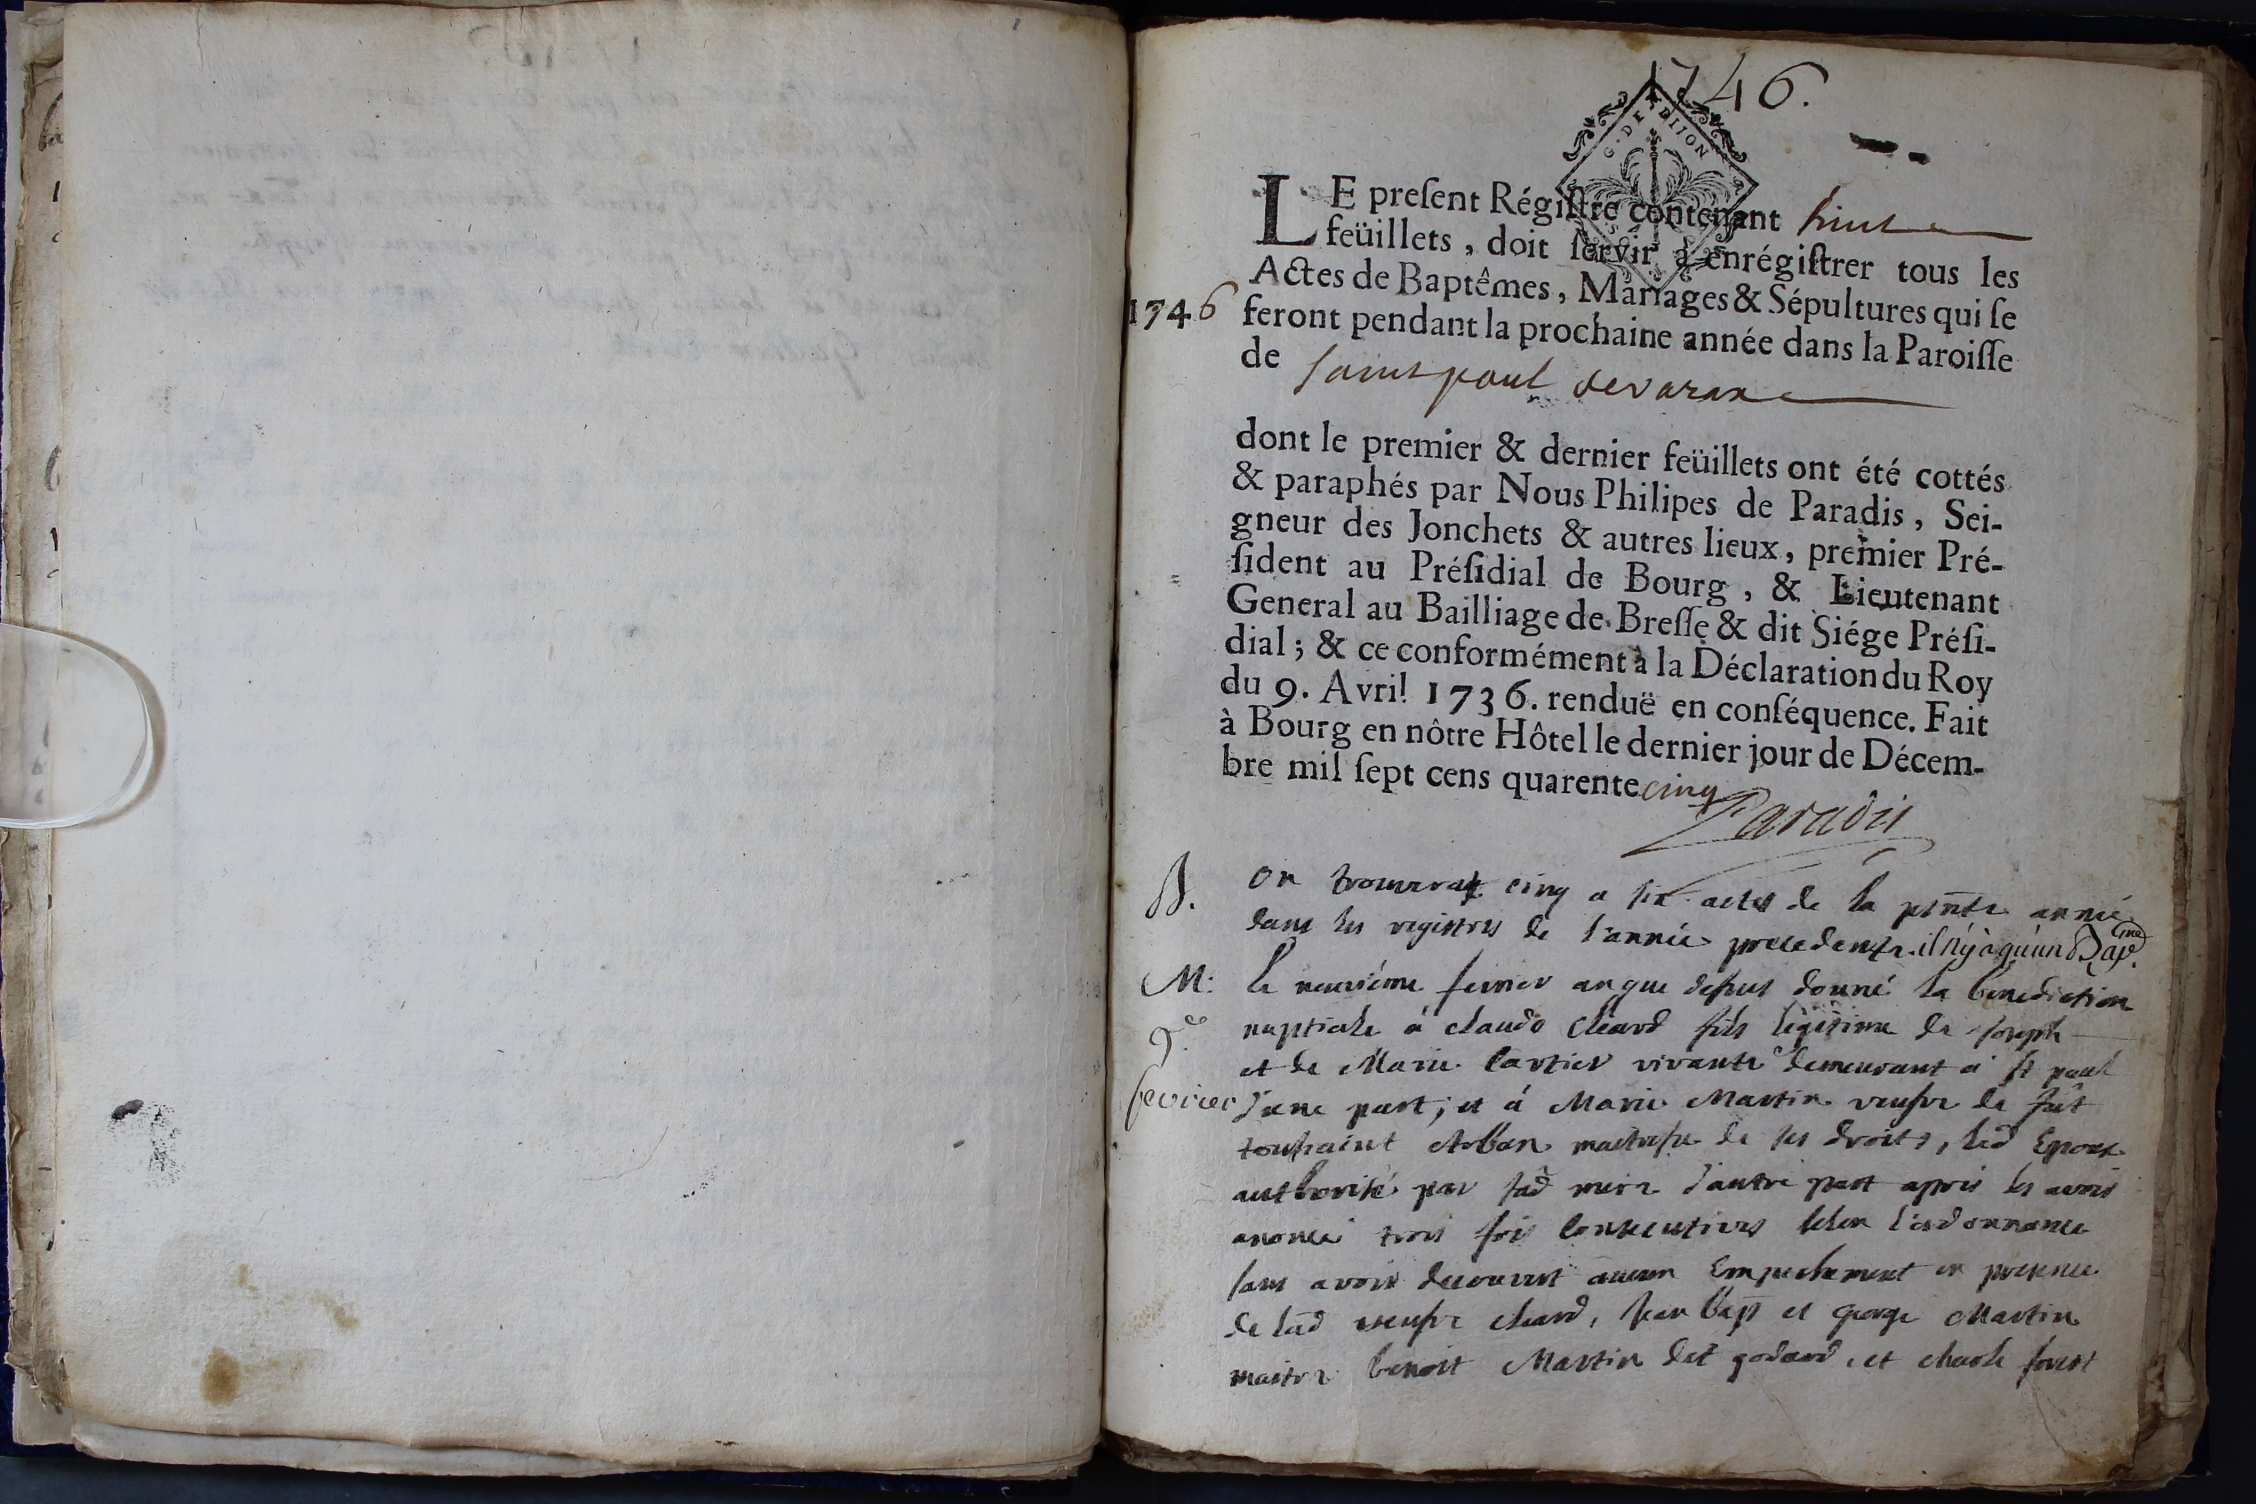 1746.
G. DE DIJON
LE preſent Régiſtre contenant huit
feüillets, doit ſervir à enrégiſtrer tous les
Actes de Baptêmes, Mariages & Sépultures qui ſe
1746 feront pendant la prochaine année dans la Paroiſſe
de Saint paul de varax
dont le premier & dernier feüillets ont été cottés
& paraphés par Nous Philipes de Paradis, Sei-
gneur des Jonchets & autres lieux, premier Pré-
ſident au Préſidial de Bourg, & Lieutenant
General au Bailliage de Breſſe & dit Siége Préſi-
dial; & ce conformément à la Déclaration du Roy
du 9. Avril 1736. renduë en conſéquence. Fait
à Bourg en nôtre Hôtel le dernier jour de Décem-
bre mil ſept cens quarente cinq
Paradis
B. on trouvera cinq a six actes de la pnte année
dans les registres de l'année precedente. il n'y à qu'un Bap
M: le neuvième fevrier an que dessus donné la benediction
9e nuptiale à claude cheard fils légitime de joseph
et de Marie cartier vivante demeurant à st paul
fevrier d'une part, et á Marie Martin veufve de fut
toussaint maitresse de ses droits, led Epoux
authorisé par sad mere d'autre part apres les avoir
anoncé trois fois consecutives selon l'ordonnance
sans avoir decouvert aucun Empechement en presence
de lad veufve cheard, jean bap et george Martin
maitre benoit Martin dit godard, et charle forest